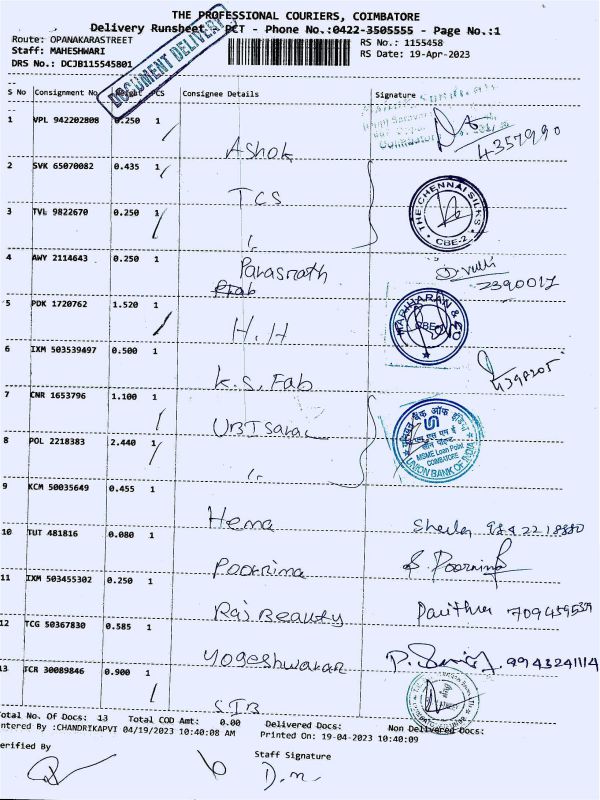 THE PROFESSIONAL COURIERS, COIMBATORE
Delivery Runsheet - PCT - Phone No.:0422-3505555 - Page No.:1
Route: OPANAKARASTREET
RS No.: 1155458
Staff: MAHESHWARI
RS Date: 19-Apr-2023
DRS No.: DCJB115545801
DOCUMENT DELIVERY
S No Consignment No Weight PCS Consignee Details Signature
1 VPL 942202808 0.250 1
Ashok 4357990
Coimbatore
2 SVK 65070082 0.435 1
TCS
THE CHENNAI SILKS
CBE-2
3 TVL 9822670 0.250 1
4 AWY 2114643 0.250 1
Parasnath
Fab
2390017
5 PDK 1720762 1.520 1
H.H
HARIHARAN & CO
CBE-1
6 IXM 503539497 0.500 1
K.S. Fab
4398205
7 CNR 1653796 1.100 1
UBI Saral
यूनियन बैंक ऑफ इंडिया
MSME Loan Point
COIMBATORE
UNION BANK OF INDIA
8 POL 2218383 2.440 1
9 KCM 50035649 0.455 1
Hema
10 TUT 481816 0.080 1
Poornima S. Poornima
11 IXM 503455302 0.250 1
Raj Beauty Pavithra
12 TCG 50367830 0.585 1
Yogeshwaran 9943241114
13 TCR 30089846 0.900 1
SIB
Total No. Of Docs: 13 Total COD Amt: 0.00 Delivered Docs: Non Delivered Docs:
Entered By :CHANDRIKAPVT 04/19/2023 10:40:08 AM Printed On: 19-04-2023 10:40:09
Verified By
Staff Signature
D.m.